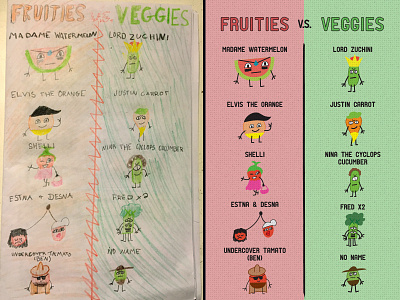 FRUITIES VS. VEGGIES
MADAME WATERMELON
LORD ZUCHINI
ELVIS THE ORANGE
JUSTIN CARROT
SHELLI
NINA THE CYCLOPS CUCUMBER
ESTNA & DESNA
FRED x2
UNDERCOVER TAMATO
(BEN)
NO NAME
FRUITIES V.S. VEGGIES
MADAME WATERMELON
LORD ZUCHINI
ELVIS THE ORANGE
JUSTIN CARROT
SHELLI
NINA THE CYCLOPS
CUCUMBER
ESTNA & DESNA
FRED X2
UNDERCOVER TAMATO
(BEN)
NO NAME